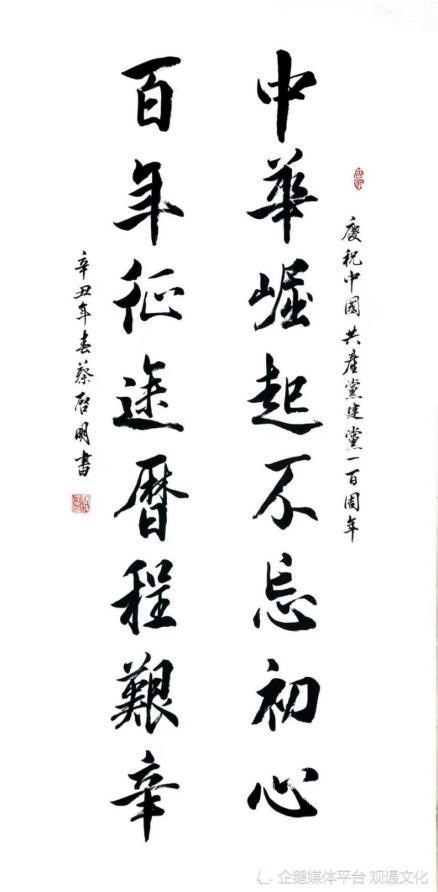 慶祝中國共產黨建黨一百周年
中華崛起不忘初心
百年征途曆程艱辛
辛丑年春蔡啓明書
企鹅媒体平台 观通文化